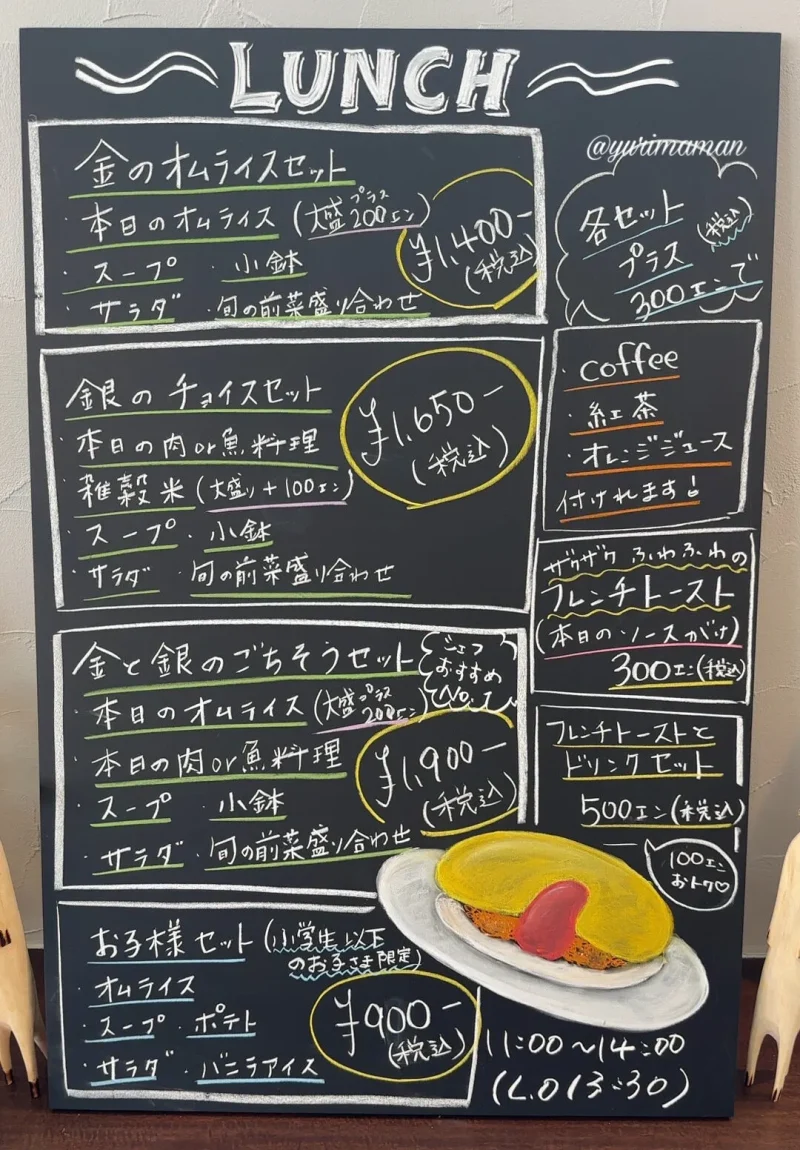 LUNCH
@yurimaman
金のオムライスセット
・本日のオムライス(大盛プラス200エン)
・スープ ・小鉢
・サラダ ・旬の前菜盛り合わせ
¥1,400-
(税込)
各セット
(税込)
プラス
300エンで
・coffee
・紅茶
・オレンジジュース
付けれます!
銀のチョイスセット
・本日の肉or魚料理
・雑穀米(大盛り+100エン)
・スープ ・小鉢
・サラダ ・旬の前菜盛り合わせ
¥1,650-
(税込)
ザクザクふわふわの
フレンチトースト
(本日のソースがけ)
300エン(税込)
金と銀のごちそうセット
シェフ
おすすめ
No.1
・本日のオムライス(大盛プラス200エン)
・本日の肉or魚料理
・スープ ・小鉢
・サラダ ・旬の前菜盛り合わせ
¥1,900-
(税込)
フレンチトーストと
ドリンクセット
500エン(税込)
100エン
おトク♡
お子様セット(小学生以下
のお子さま限定)
・オムライス
・スープ ・ポテト
・サラダ ・バニラアイス
¥900-
(税込)
11:00~14:00
(L.O 13:30)